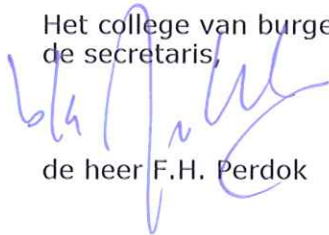 Het college van burge
de secretaris,
b/a
de heer F.H. Perdok